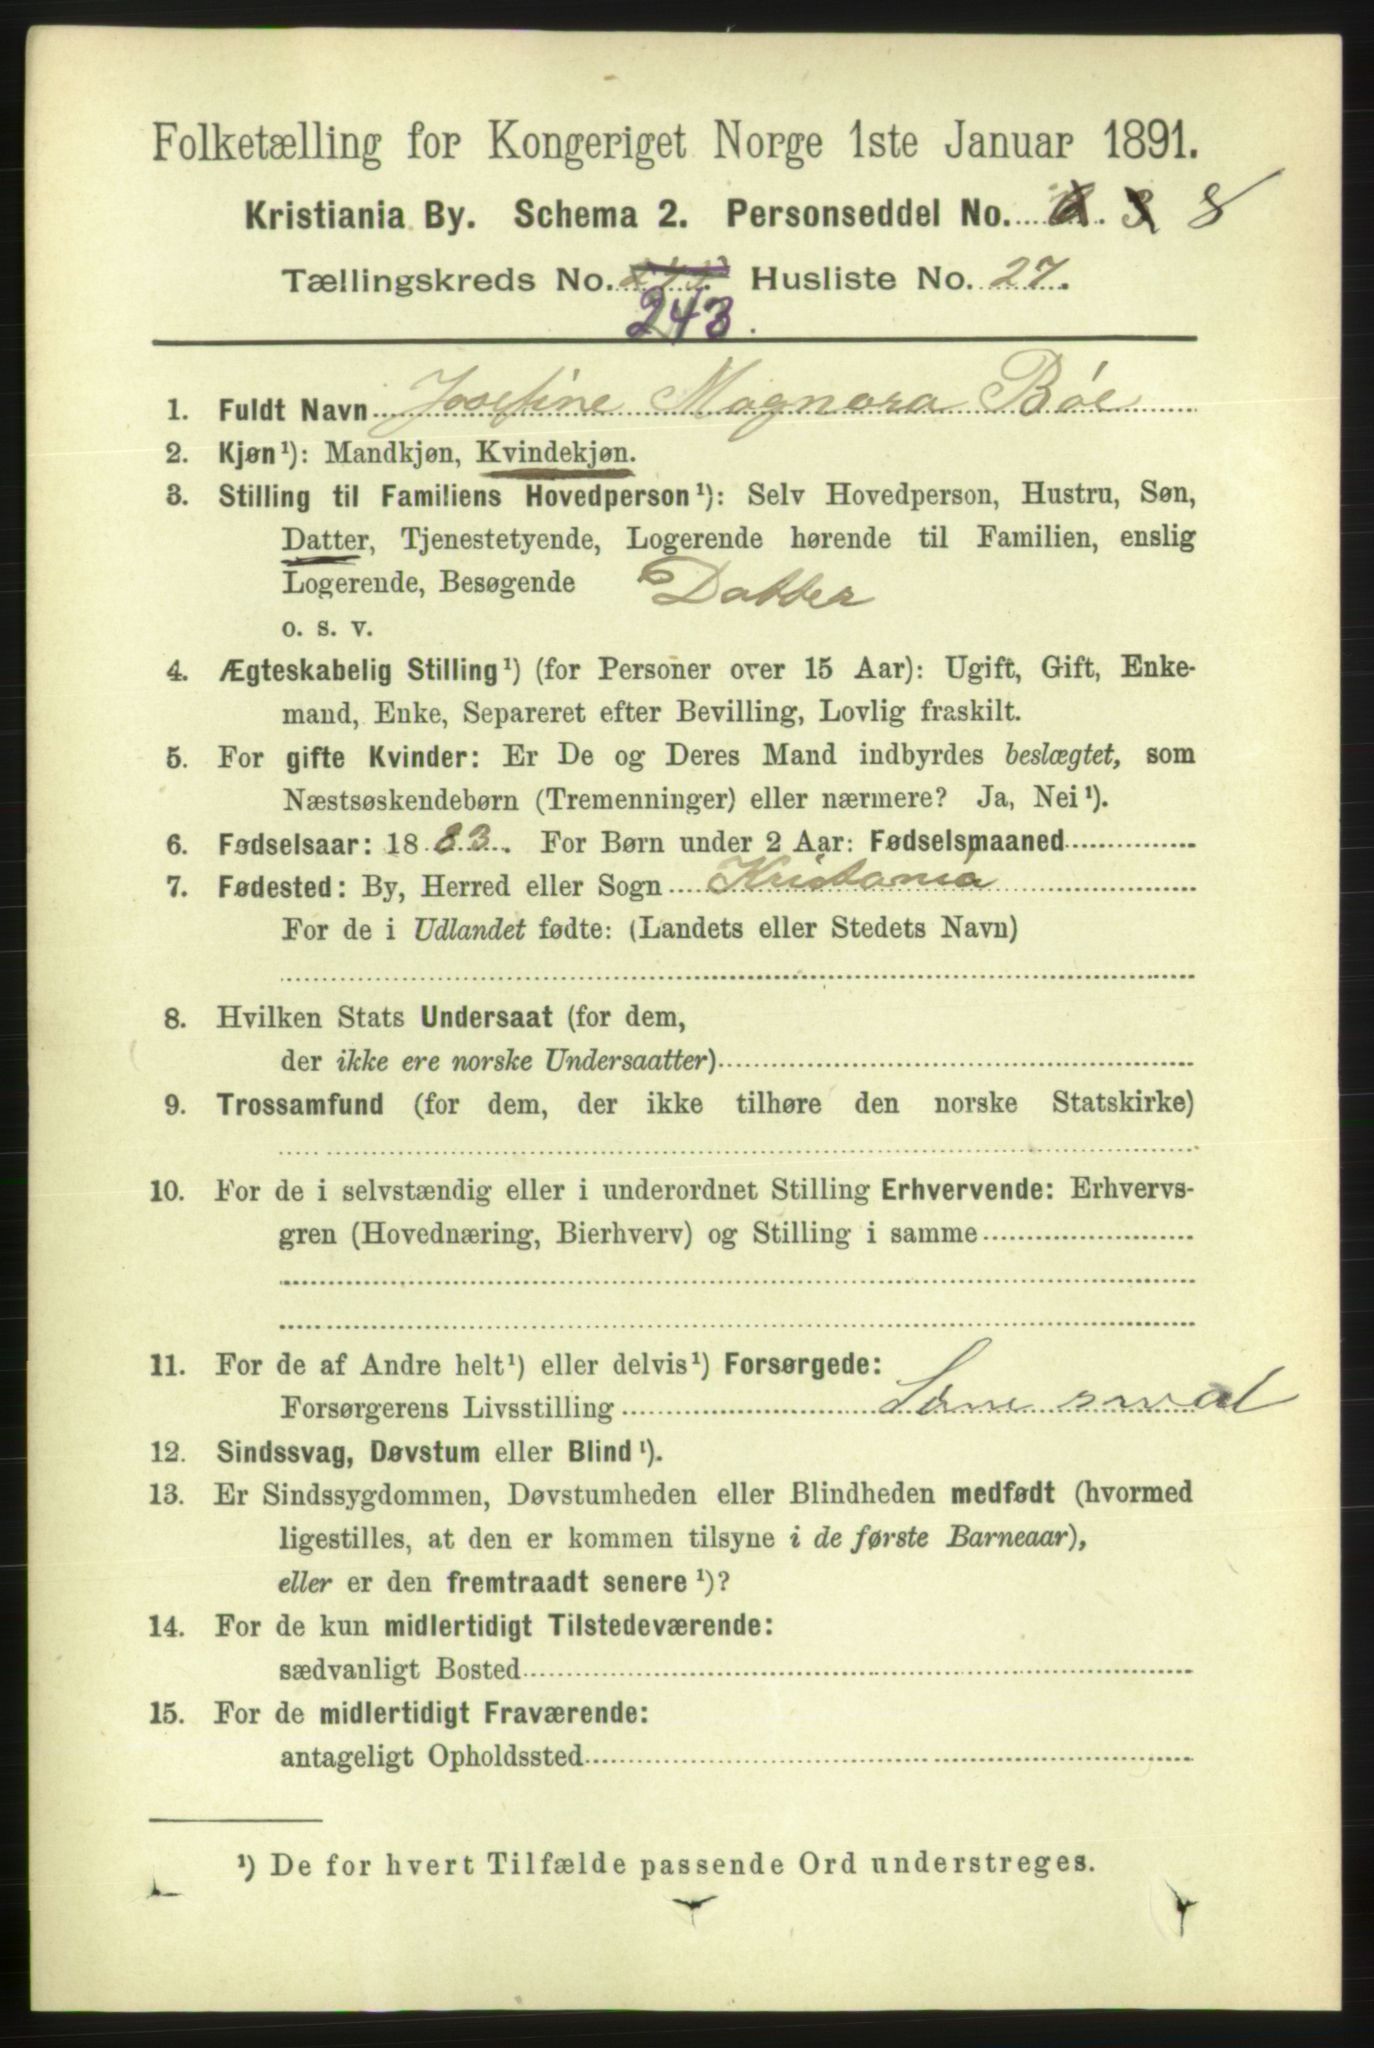 Folketælling for Kongeriget Norge 1ste Januar 1891.
Kristiania By. Schema 2. Personseddel No. 3 8
Tællingskreds No. Husliste No. 27.
243.
1. Fuldt Navn Josefine Magnora Bøe
2. Kjøn¹): Mandkjøn, Kvindekjøn.
3. Stilling til Familiens Hovedperson¹): Selv Hovedperson, Hustru, Søn,
Datter, Tjenestetyende, Logerende hørende til Familien, enslig
Logerende, Besøgende Datter
o. s. v.
4. Ægteskabelig Stilling¹) (for Personer over 15 Aar): Ugift, Gift, Enke-
mand, Enke, Separeret efter Bevilling, Lovlig fraskilt.
5. For gifte Kvinder: Er De og Deres Mand indbyrdes beslægtet, som
Næstsøskendebørn (Tremenninger) eller nærmere? Ja, Nei¹).
6. Fødselsaar: 1883. For Børn under 2 Aar: Fødselsmaaned
7. Fødested: By, Herred eller Sogn Kristania
For de i Udlandet fødte: (Landets eller Stedets Navn)
8. Hvilken Stats Undersaat (for dem,
der ikke ere norske Undersaatter)
9. Trossamfund (for dem, der ikke tilhøre den norske Statskirke)
10. For de i selvstændig eller i underordnet Stilling Erhvervende: Erhvervs-
gren (Hovednæring, Bierhverv) og Stilling i samme
11. For de af Andre helt¹) eller delvis¹) Forsørgede:
Forsørgerens Livsstilling
12. Sindssvag, Døvstum eller Blind¹).
13. Er Sindssygdommen, Døvstumheden eller Blindheden medfødt (hvormed
ligestilles, at den er kommen tilsyne i de første Barneaar),
eller er den fremtraadt senere¹)?
14. For de kun midlertidigt Tilstedeværende:
sædvanligt Bosted
15. For de midlertidigt Fraværende:
antageligt Opholdssted
¹) De for hvert Tilfælde passende Ord understreges.